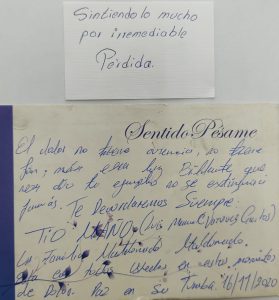 Sintiendolo mucho
por irremediable
Pérdida.
Sentido Pésame
El dolor no tiene ausencia, no tiene
fin; más esa luz brillante que
nos dio tu ejemplo no se extinguirá
jamás. Te Recordaremos Siempre.
TIO
La Familia Maldonado Maldonado.
con todos ustedes en estos momentos
de Dolor. Paz en Su Tumba. 16/11/2021